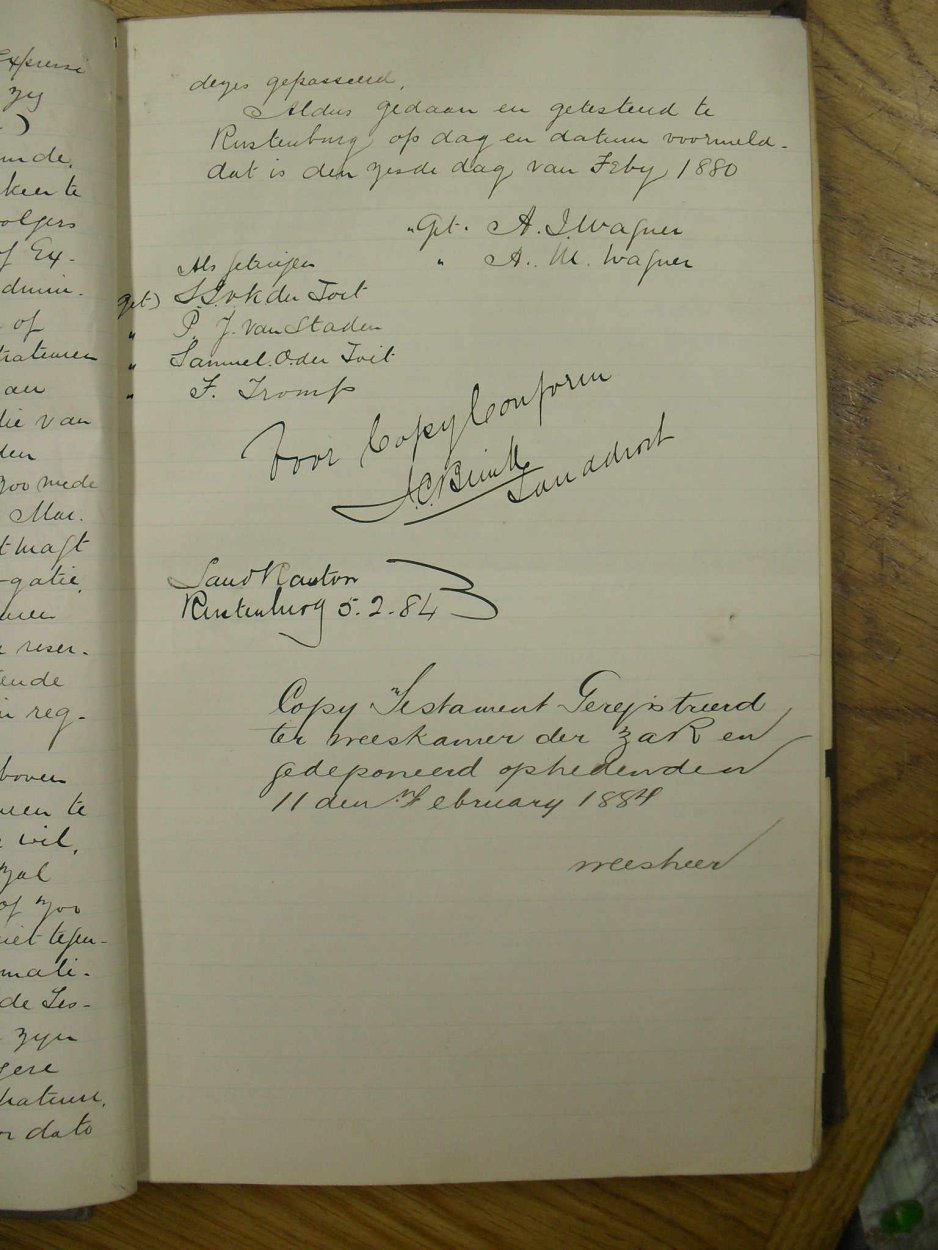 Expresse
zeg
unde,
keer te
volgers
of Ex-
admini-
of
trateuren
an
die van
den
zoo mede
Mar.
t magt
-gatie,
reser-
ende
reg-
boven
te
wil,
zal
of zoo
niet tegen-
mali-
de Tes-
zyn
gere
trateur,
dato
dezes gepasseerd,
Aldus gedaan en getesteerd te
Rustenburg op dag en datum voormeld-
dat is den zesde dag van Feby 1880
"Get" A. J. Wagner
" A. M. Wagner
Als getuigen
get) S. J. v/k du Toit
" P. J. van Staden
" Samuel. O. du Toit
" F. Tromp
Voor Copy Conform
A.C. Brink
Landdrost
Landkantoor
Rustenburg 5.2.84
Copy Testament Geregistreerd
ter weeskamer der ZAR en
gedeponeerd opheden den
11 den February 1884
weesheer